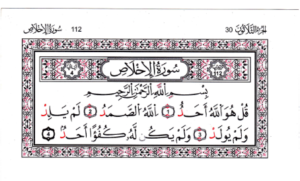 الجزء الثلاثون 30 112 سورة الإخلاص
سُورَةُ الإِخْلَاصِ
بِسْمِ اللَّهِ الرَّحْمَٰنِ الرَّحِيمِ
قُلْ هُوَ اللَّهُ أَحَدٌ ١ اللَّهُ الصَّمَدُ ٢ لَمْ يَلِدْ
وَلَمْ يُولَدْ ٣ وَلَمْ يَكُن لَّهُ كُفُوًا أَحَدٌ ٤